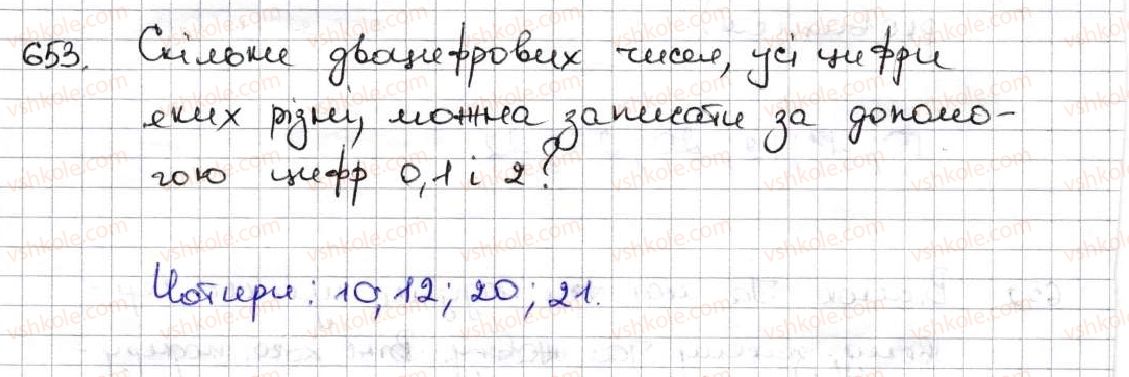 653. Скільки двоцифрових чисел, усі цифри
яких різні, можна записати за допомо-
гою цифр 0,1 і 2?
Чотири: 10; 12; 20; 21.